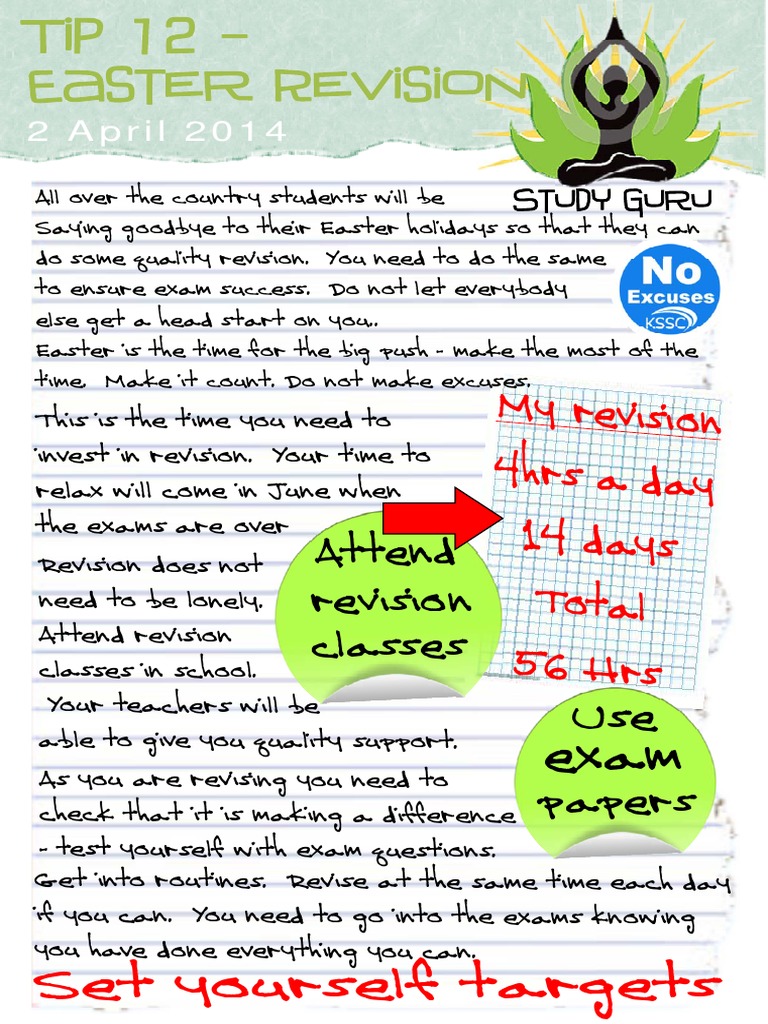 TIP 12 –
EASTER REVISION
2 April 2014
STUDY GURU
All over the country students will be
Saying goodbye to their Easter holidays so that they can
do some quality revision. You need to do the same
to ensure exam success. Do not let everybody
else get a head start on you..
Easter is the time for the big push - make the most of the
time. Make it count. Do not make excuses.
No
Excuses
KSSC
This is the time you need to
invest in revision. Your time to
relax will come in June when
the exams are over
My revision
4hrs a day
14 days
Total
56 Hrs
Attend
revision
classes
Revision does not
need to be lonely.
Attend revision
classes in school.
Your teachers will be
able to give you quality support.
Use
exam
papers
As you are revising you need to
check that it is making a difference
- test yourself with exam questions.
Get into routines. Revise at the same time each day
if you can. You need to go into the exams knowing
you have done everything you can.
Set yourself targets